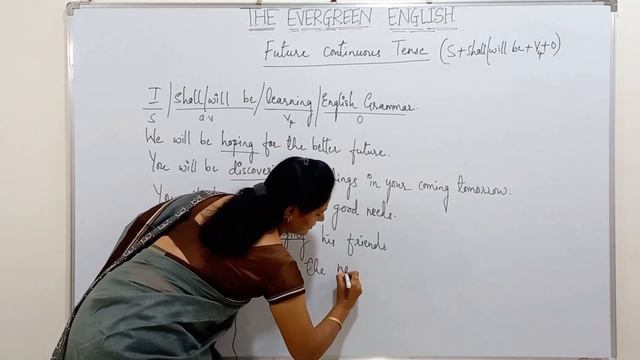 THE EVERGREEN ENGLISH
Future Continuous Tense (S+Shall/will be+V4+O)
I/Shall/will be/learning/English Grammar.
S av V4 O
We will be hoping for the better future.
You will be discoveri ings in your coming tomorrow.
You good needs.
his friends
the ne